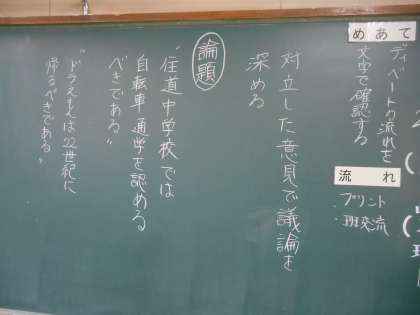 めあて
ディベートの流れを
文字で確認する
流れ
・プリント
・班交流
対立した意見で議論を
深める
論題
"住道中学校では
自転車通学を認める
べきである"
"ドラえもんは22世紀に
帰るべきである"